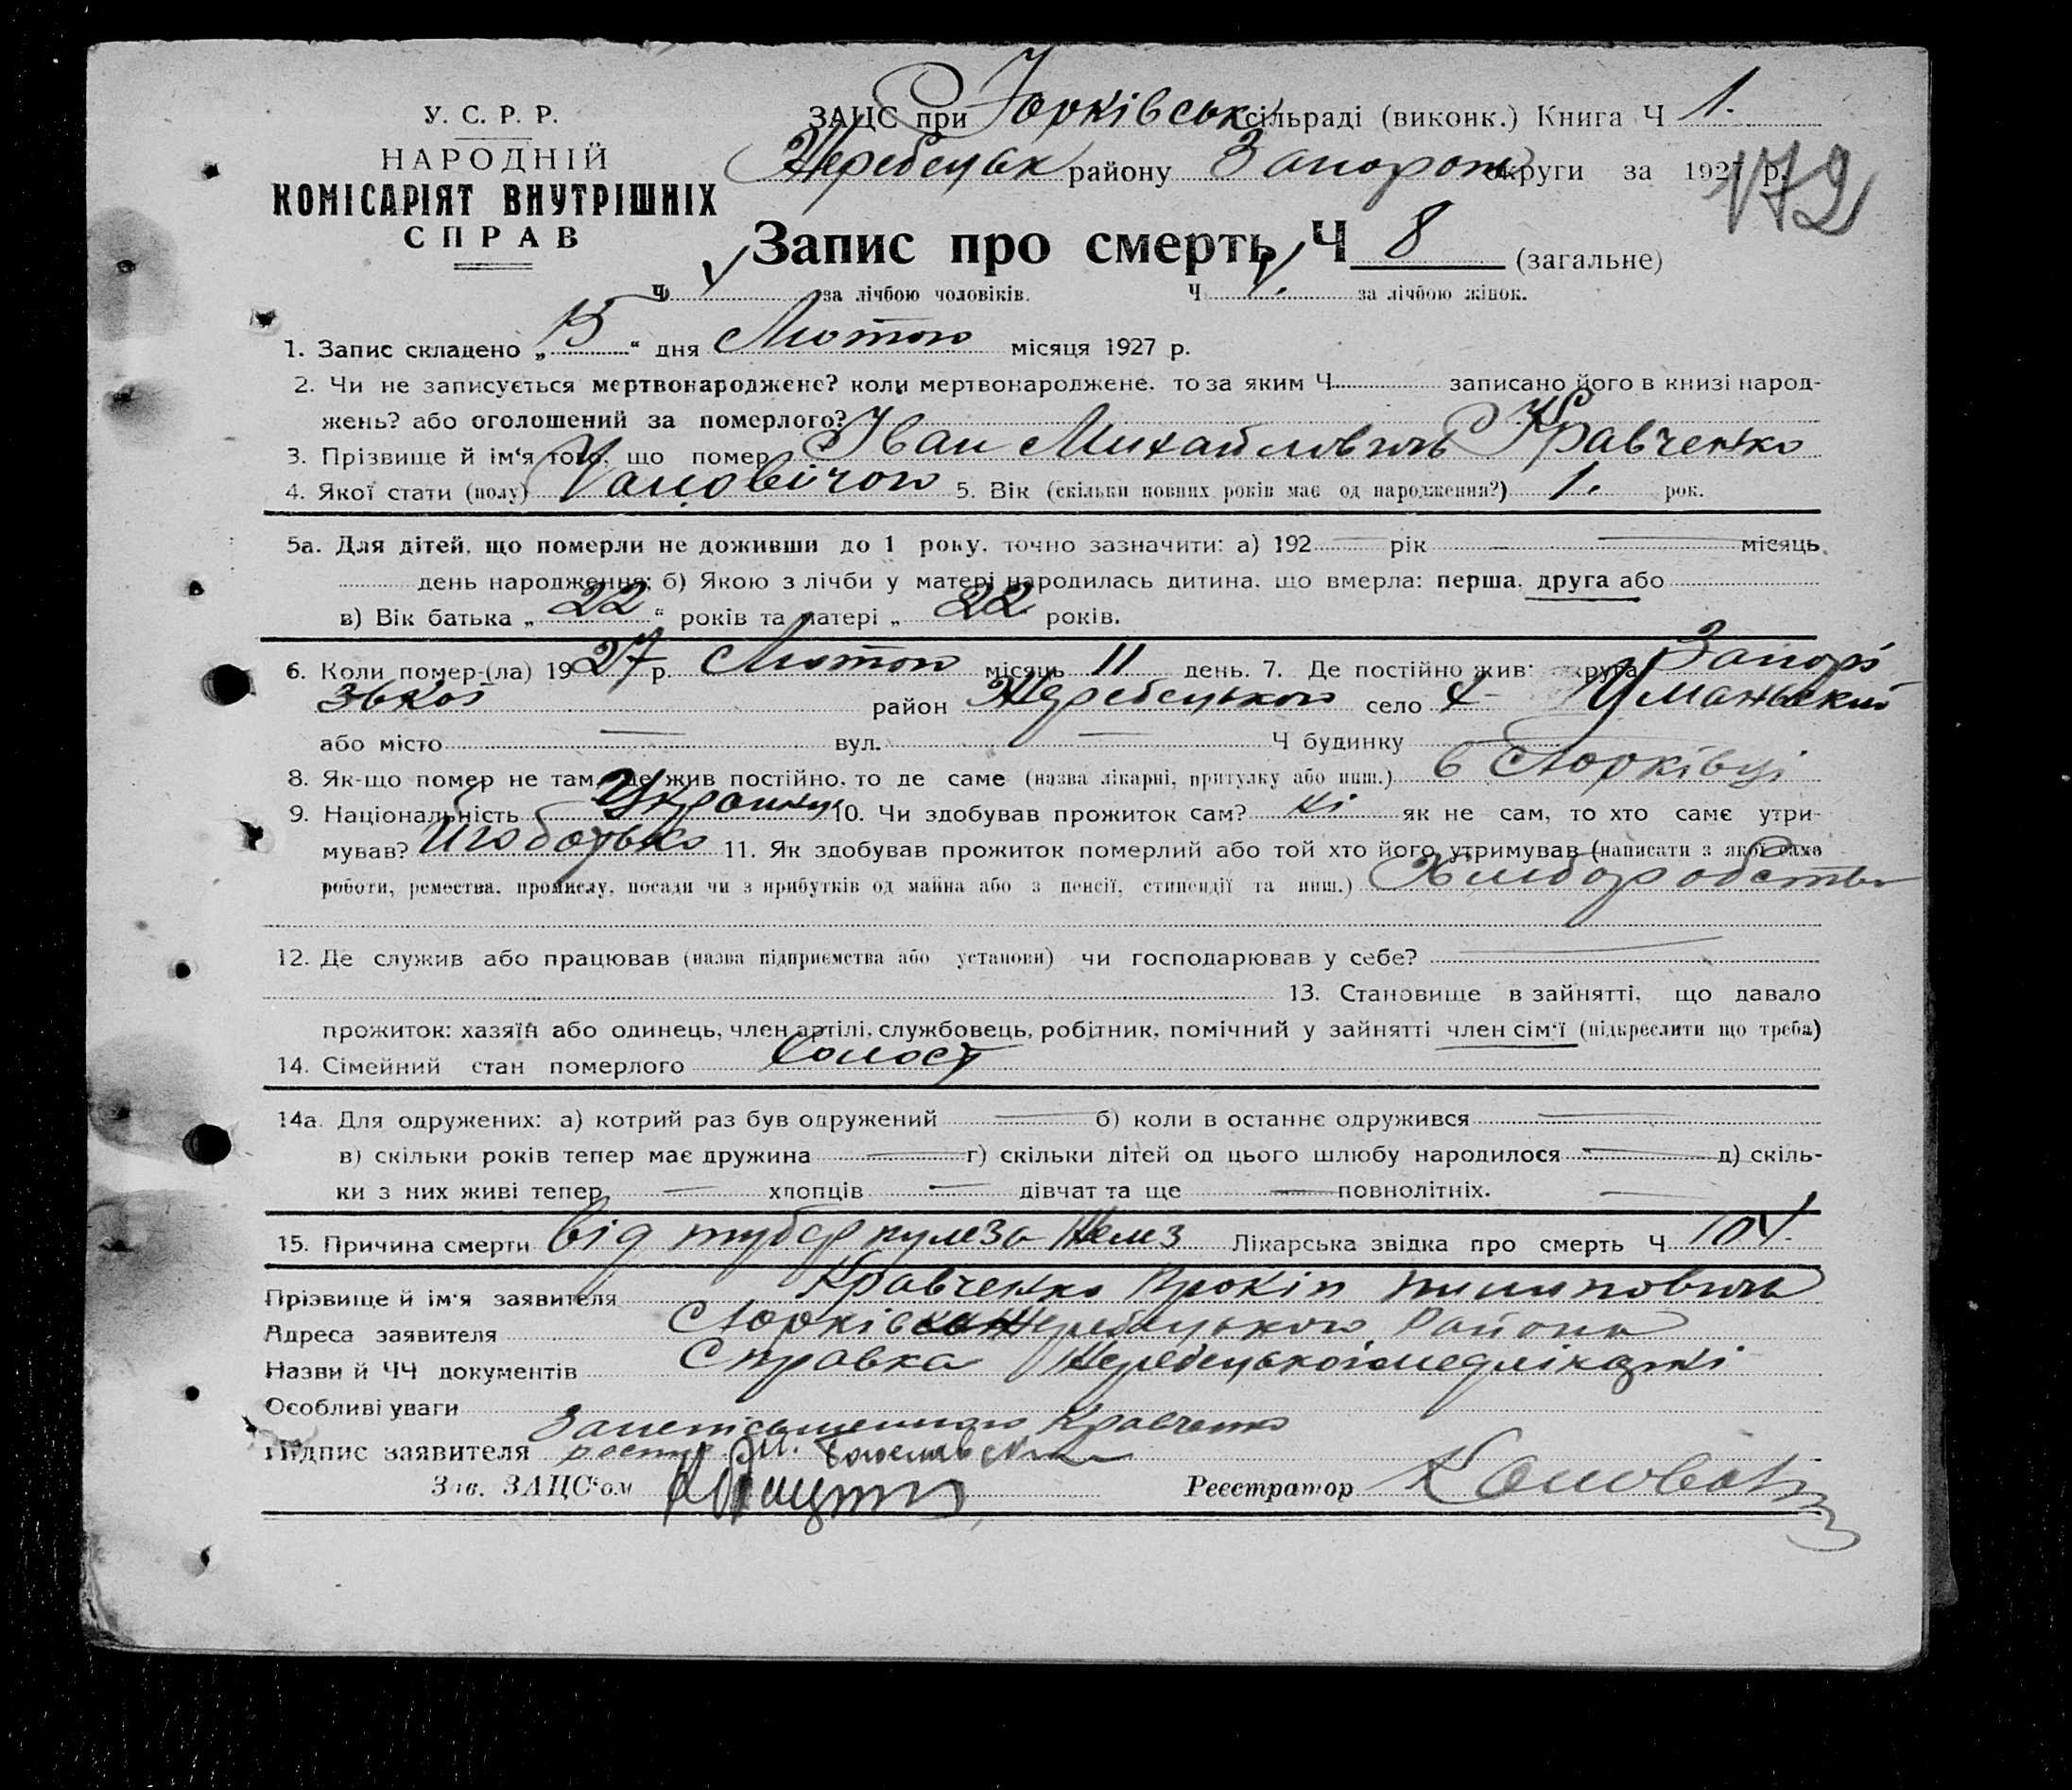 У. С. Р. Р.
НАРОДНІЙ
КОМІСАРІЯТ ВНУТРІШНІХ
СПРАВ
ЗАЦС при Юрківськ сільраді (виконк.) Книга Ч 1.
Жеребецьк району Запорож округи за 1927 р.
172
Запис про смерть Ч 8 (загальне)
Ч за лічбою чоловіків. Ч за лічбою жінок.
1. Запис складено „15“ дня Лютого місяця 1927 р.
2. Чи не записується мертвонароджене? коли мертвонароджене, то за яким Ч записано його в книзі народ-
жень? або оголошений за померлого?
3. Прізвище й ім'я того, що помер Іван Михайлович Кравченко
4. Якої стати (полу) 5. Вік (скільки повних років має од народження?) 1. рок.
5а. Для дітей, що померли не доживши до 1 року, точно зазначити: а) 192 — рік — місяць
день народження; б) Якою з лічби у матері народилась дитина, що вмерла: перша, друга або
в) Вік батька „22“ років та матері „22 років.
6. Коли помер-(ла) 1927 р. Лютого місяць 11 день. 7. Де постійно жив: округа Запорі
зької район Жеребецького село х Уманьский
або місто — вул. — Ч будинку
8. Як-що помер не там, де жив постійно, то де саме (назва лікарні, притулку або инш.) в Юрківці
9. Національність 10. Чи здобував прожиток сам? ні як не сам, то хто саме утри-
мував? його батько 11. Як здобував прожиток померлий або той хто його утримував (написати з якої саме
роботи, ремества, промислу, посади чи з прибутків од майна або з пенсії, стипендії та инш.) Хлиборобство
12. Де служив або працював (назва підприємства або установи) чи господарював у себе? —
13. Становище в зайнятті, що давало
прожиток: хазяїн або одинець, член артілі, службовець, робітник, помічний у зайнятті член сім'ї (підкреслити що треба)
14. Сімейний стан померлого Холост
14а. Для одружених: а) котрий раз був одружений — б) коли в останнє одружився —
в) скільки років тепер має дружина — г) скільки дітей од цього шлюбу народилося — д) скіль-
ки з них живі тепер — хлопців — дівчат та ще — повнолітніх. —
15. Причина смерти від туберкулеза желез Лікарська звідка про смерть Ч 104.
Прізвище й ім'я заявителя Кравченко Прокіп Пилипович
Адреса заявителя Юрківка Жеребецького Района
Назви й ЧЧ документів Справка Жеребецької
Особливі уваги
Підпис заявителя За неписьменного Кравченко
Зав. ЗАЦС'ом Реєстратор